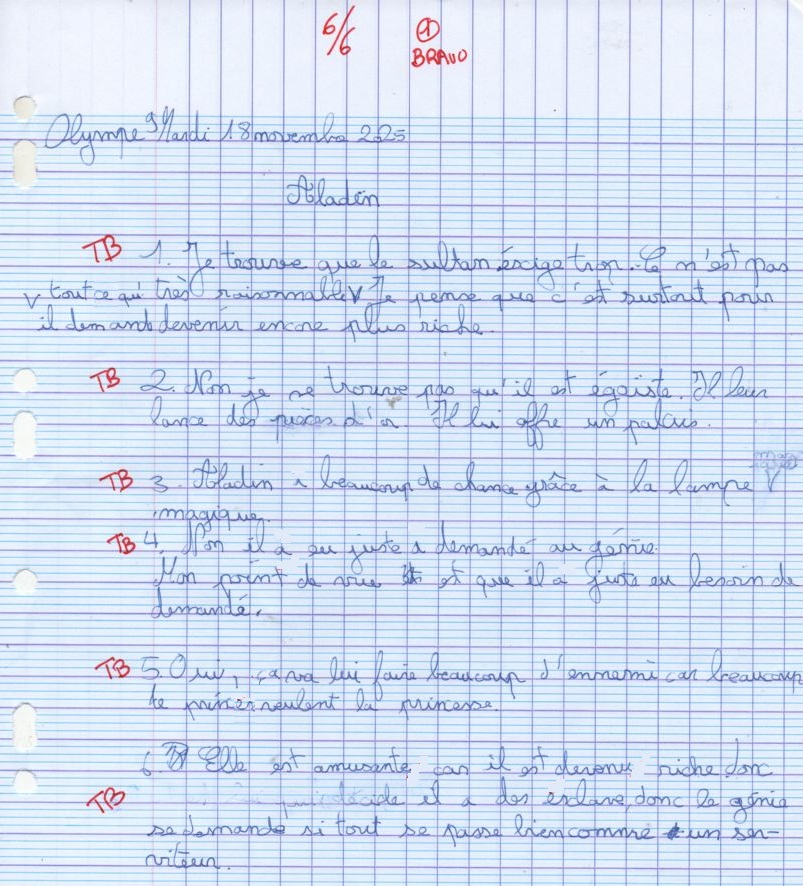 6/6 1
BRAVO
Olympe Mardi 18 novembre 2025
Aladin
TB 1. Je trouve que le sultan exige trop. Ce n'est pas
V tout ce qu' très raisonnable V Je pense que c'est surtout pour
il demande devenir encore plus riche.
TB 2. Non je ne trouve pas qu'il est égoïste. Il leur
lance des pièces d'or. Il lui offre un palais.
TB 3. Aladin a beaucoup de chance grâce à la lampe V
magique.
TB 4. Non il a eu juste a demandé au génie.
Mon point de vue est que il a juste eu besoin de
demandé.
TB 5. Oui, ça va lui faire beaucoup d'ennemi car beaucoup
de princes veulent la princesse.
6. Elle est amusante, car il est devenu riche donc
TB qui décide il a des esclave, donc le génie
se demande si tout se passe bien comme un ser-
viteur.